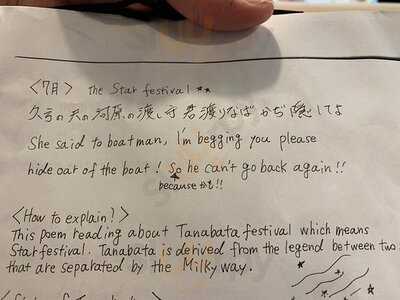 <7月> the Star festival **
久方の天の河原の渡し守君渡りなばかぢ隠してよ
She said to boatman, I'm begging you please
hide oar of the boat! So he can't go back again!!
because かも!!
<How to explain?>
This poem reading about Tanabata festival which means
Star festival. Tanabata is derived from the legend between two
that are separated by the Milky way.